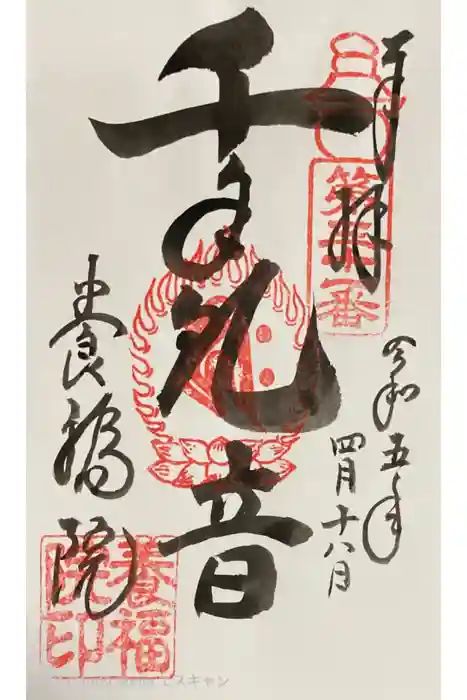 奉拝
令和五年
四月十八日
千手観音
養福院
養福
院印
でスキャン